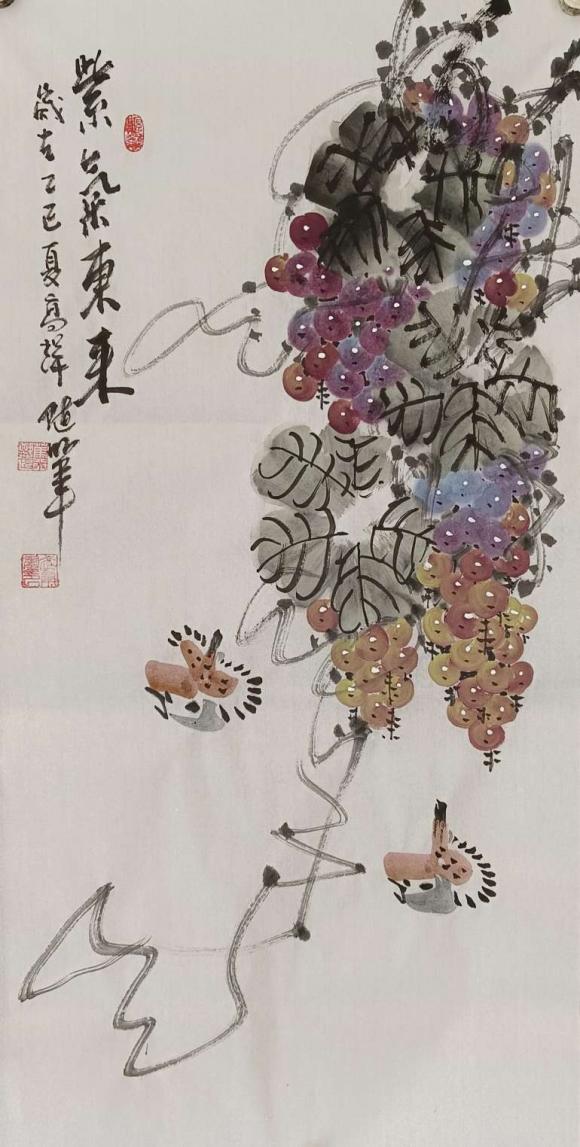 紫气东来
岁在乙巳夏高辉随笔